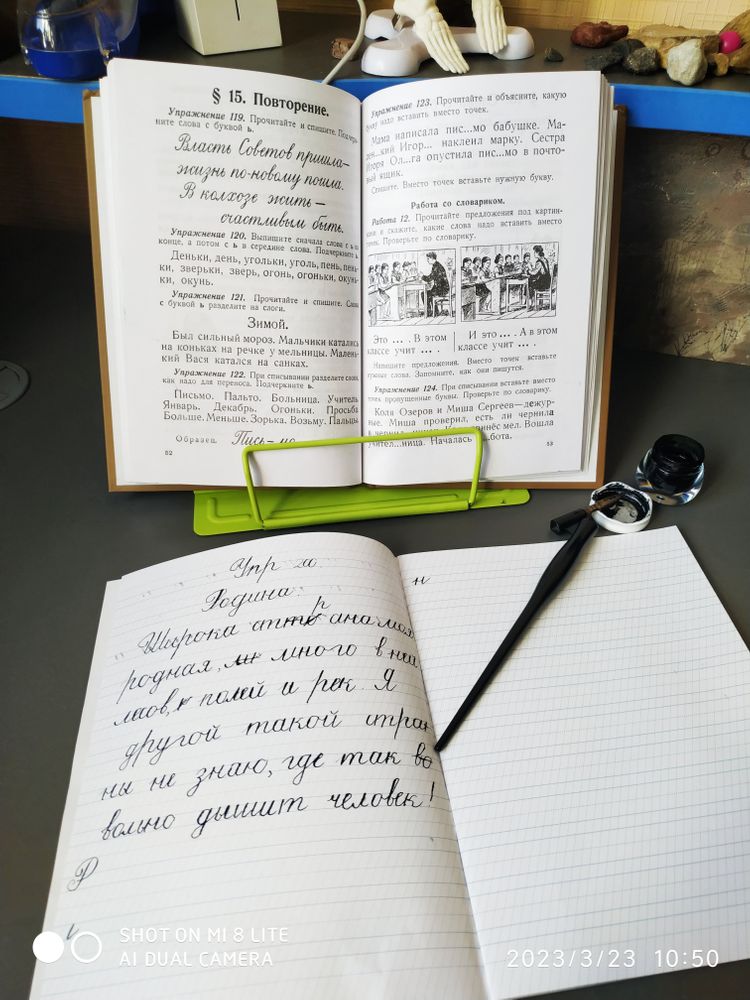 § 15. Повторение.
Упражнение 119. Прочитайте и спишите. Подчерк-
ните слова с буквой ь.
Власть Советов пришла—
жизнь по-новому пошла.
В колхозе жить —
счастливым быть.
Упражнение 120. Выпишите сначала слова с ь на
конце, а потом с ь в середине слова. Подчеркните ь.
Деньки, день, угольки, уголь, пень, пень-
ки, зверьки, зверь, огонь, огоньки, окунь-
ки, окунь.
Упражнение 121. Прочитайте и спишите. Слова
с буквой ь разделите на слоги.
Зимой.
Был сильный мороз. Мальчики катались
на коньках на речке у мельницы. Малень-
кий Вася катался на санках.
Упражнение 122. При списывании разделите слова,
как надо для переноса. Подчеркните ь.
Письмо. Пальто. Больница. Учитель.
Январь. Декабрь. Огоньки. Просьба.
Больше. Меньше. Зорька. Возьму. Пальцы.
Образец. Пись- мо
52
Упражнение 123. Прочитайте и объясните, какую
букву надо вставить вместо точек.
Мама написала пис...мо бабушке. Ма-
лен...кий Игор... наклеил марку. Сестра
Игоря Ол...га опустила пис...мо в почто-
вый ящик.
Спишите. Вместо точек вставьте нужную букву.
Работа со словариком.
Работа 12. Прочитайте предложения под картин-
ками и скажите, какие слова надо вставить вместо
точек. Проверьте по словарику.
Это ... . В этом
классе учит ... .
И это ... . А в этом
классе учит ... .
Напишите предложения. Вместо точек вставьте
нужные слова. Запомните, как они пишутся.
Упражнение 124. При списывании вставьте вместо
точек пропущенные буквы. Проверьте по словарику.
Коля Озеров и Миша Сергеев—дежур-
ные. Миша проверил, есть ли чернила
принёс мел. Вошла
учител...ница. Началась бота.
53
Упр 20
Родина.
"Широка страна моя
родная, много в ней
лесов, полей и рек. Я
другой такой стра-
ны не знаю, где так во
вольно дышит человек!
Р
н
SHOT ON MI 8 LITE
AI DUAL CAMERA
2023/3/23 10:50